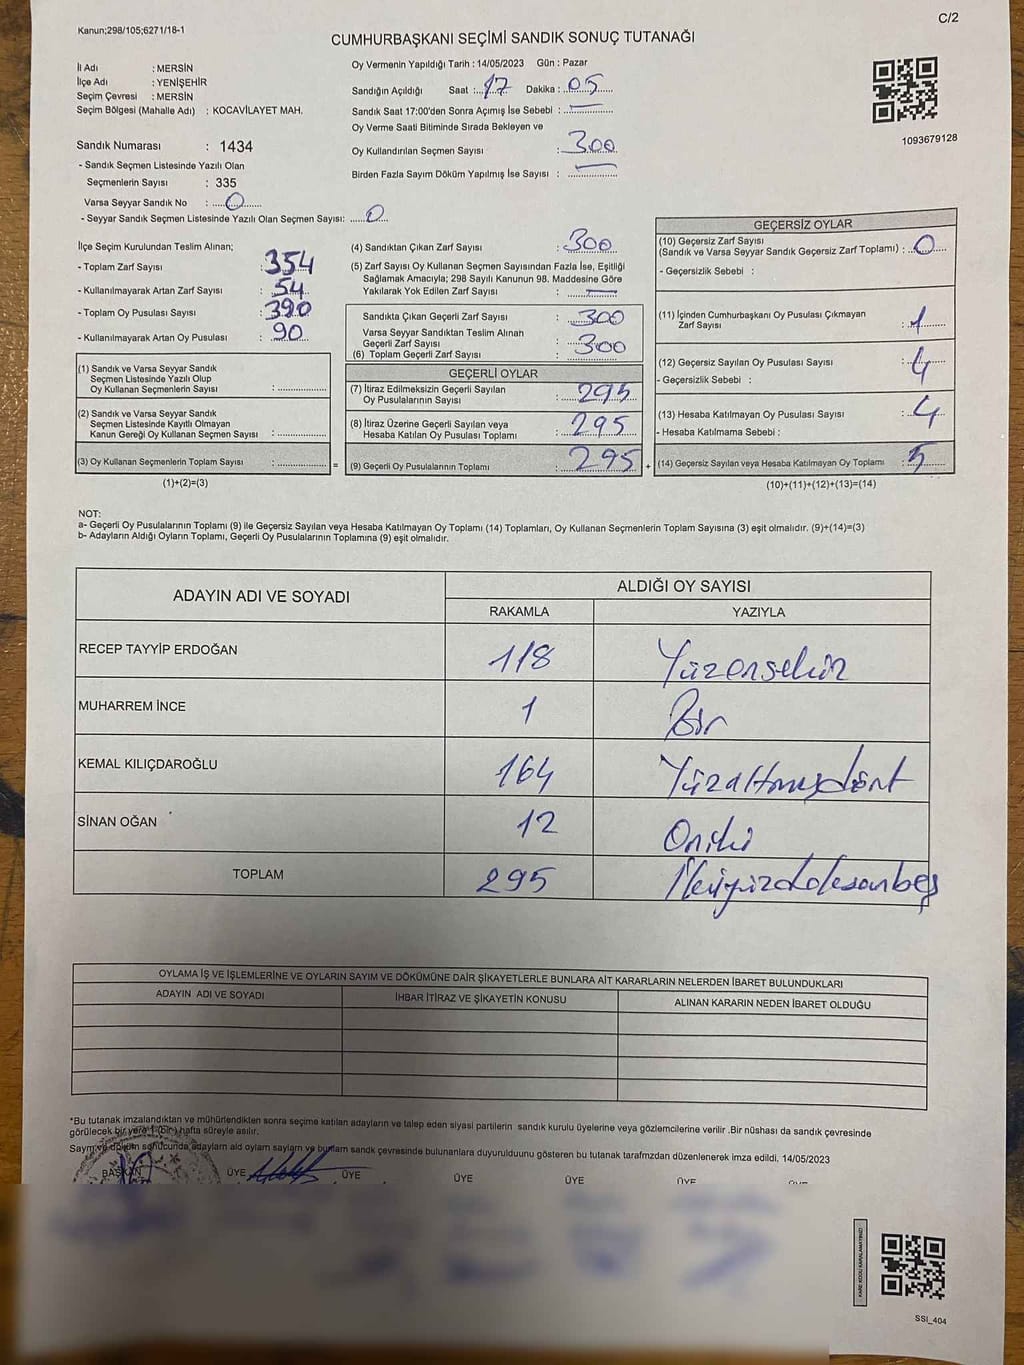 Kanun;298/105;6271/18-1
C/2
CUMHURBAŞKANI SEÇİMİ SANDIK SONUÇ TUTANAĞI
İl Adı : MERSİN
İlçe Adı : YENİŞEHİR
Seçim Çevresi : MERSİN
Seçim Bölgesi (Mahalle Adı) : KOCAVİLAYET MAH.
Sandık Numarası : 1434
- Sandık Seçmen Listesinde Yazılı Olan
Seçmenlerin Sayısı : 335
Varsa Seyyar Sandık No : 0
- Seyyar Sandık Seçmen Listesinde Yazılı Olan Seçmen Sayısı: 0
Oy Vermenin Yapıldığı Tarih : 14/05/2023 Gün : Pazar
Sandığın Açıldığı Saat : 17 Dakika : 05
Sandık Saat 17:00'den Sonra Açımış İse Sebebi : —
Oy Verme Saati Bitiminde Sırada Bekleyen ve
Oy Kullandırılan Seçmen Sayısı : 300
Birden Fazla Sayım Döküm Yapılmış İse Sayısı : —
1093679128
İlçe Seçim Kurulundan Teslim Alınan;
- Toplam Zarf Sayısı : 354
- Kullanılmayarak Artan Zarf Sayısı : 54
- Toplam Oy Pusulası Sayısı : 390
- Kullanılmayarak Artan Oy Pusulası : 90
(1) Sandık ve Varsa Seyyar Sandık
Seçmen Listesinde Yazılı Olup
Oy Kullanan Seçmenlerin Sayısı :
(2) Sandık ve Varsa Seyyar Sandık
Seçmen Listesinde Kayıtlı Olmayan
Kanun Gereği Oy Kullanan Seçmen Sayısı :
(3) Oy Kullanan Seçmenlerin Toplam Sayısı :
(1)+(2)=(3)
(4) Sandıktan Çıkan Zarf Sayısı : 300
(5) Zarf Sayısı Oy Kullanan Seçmen Sayısından Fazla İse, Eşitliği
Sağlamak Amacıyla; 298 Sayılı Kanunun 98. Maddesine Göre
Yakılarak Yok Edilen Zarf Sayısı : —
Sandıkta Çıkan Geçerli Zarf Sayısı : 300
Varsa Seyyar Sandıktan Teslim Alınan
Geçerli Zarf Sayısı :
(6) Toplam Geçerli Zarf Sayısı : 300
GEÇERLİ OYLAR
(7) İtiraz Edilmeksizin Geçerli Sayılan
Oy Pusulalarının Sayısı : 295
(8) İtiraz Üzerine Geçerli Sayılan veya
Hesaba Katılan Oy Pusulası Toplamı : 295
= (9) Geçerli Oy Pusulalarının Toplamı : 295 +
GEÇERSİZ OYLAR
(10) Geçersiz Zarf Sayısı
(Sandık ve Varsa Seyyar Sandık Geçersiz Zarf Toplamı) : 0
- Geçersizlik Sebebi :
(11) İçinden Cumhurbaşkanı Oy Pusulası Çıkmayan
Zarf Sayısı : 1
(12) Geçersiz Sayılan Oy Pusulası Sayısı : 4
- Geçersizlik Sebebi :
(13) Hesaba Katılmayan Oy Pusulası Sayısı : 4
- Hesaba Katılmama Sebebi :
(14) Geçersiz Sayılan veya Hesaba Katılmayan Oy Toplamı : 5
(10)+(11)+(12)+(13)=(14)
NOT:
a- Geçerli Oy Pusulalarının Toplamı (9) ile Geçersiz Sayılan veya Hesaba Katılmayan Oy Toplamı (14) Toplamları, Oy Kullanan Seçmenlerin Toplam Sayısına (3) eşit olmalıdır. (9)+(14)=(3)
b- Adayların Aldığı Oyların Toplamı, Geçerli Oy Pusulalarının Toplamına (9) eşit olmalıdır.
ADAYIN ADI VE SOYADI ALDIĞI OY SAYISI
RAKAMLA YAZIYLA
RECEP TAYYİP ERDOĞAN 118 Yüzonsekiz
MUHARREM İNCE 1 Bir
KEMAL KILIÇDAROĞLU 164 Yüzaltmışdört
SİNAN OĞAN 12 Oniki
TOPLAM 295 İkiyüzdoksanbeş
OYLAMA İŞ VE İŞLEMLERİNE VE OYLARIN SAYIM VE DÖKÜMÜNE DAİR ŞİKAYETLERLE BUNLARA AİT KARARLARIN NELERDEN İBARET BULUNDUKLARI
ADAYIN ADI VE SOYADI İHBAR İTİRAZ VE ŞİKAYETİN KONUSU ALINAN KARARIN NEDEN İBARET OLDUĞU
*Bu tutanak imzalandıktan ve mühürlendikten sonra seçime katılan adayların ve talep eden siyasi partilerin sandık kurulu üyelerine veya gözlemcilerine verilir .Bir nüshası da sandık çevresinde
görülecek bir yere 1 (bir) hafta süreyle asılır.
Sayım ve döküm sonucunda adayların aldı oyların sayların ve bunların sandk çevresinde bulunanlara duyurulduunu gösteren bu tutanak tarafmzdan düzenlenerek imza edildi. 14/05/2023
BAŞKAN ÜYE ÜYE ÜYE ÜYE ÜYE
KARE KODU KARALAMAYINIZ!
SSI_404